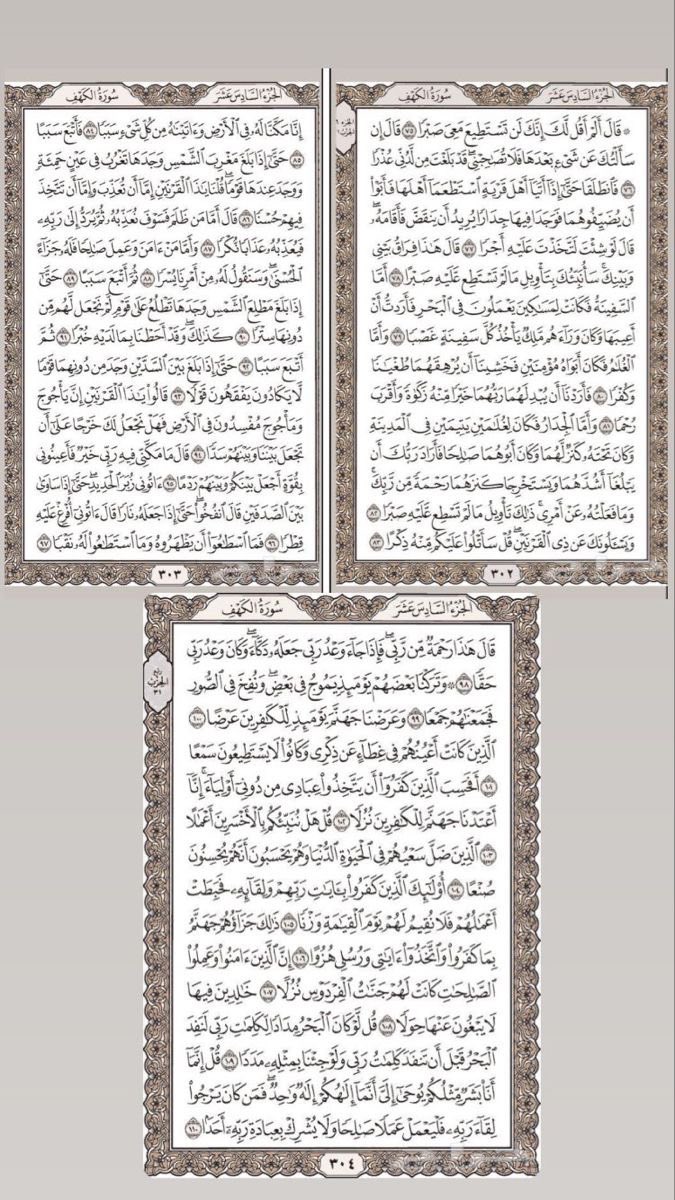 الجُزْءُ السَّادِسَ عَشَرَ سُورَةُ الكَهْفِ
۞ قَالَ أَلَمْ أَقُل لَّكَ إِنَّكَ لَن تَسْتَطِيعَ مَعِيَ صَبْرًا ٧٥ قَالَ إِن
سَأَلْتُكَ عَن شَيْءٍۭ بَعْدَهَا فَلَا تُصَٰحِبْنِي ۖ قَدْ بَلَغْتَ مِن لَّدُنِّي عُذْرًا
٧٦ فَٱنطَلَقَا حَتَّىٰٓ إِذَآ أَتَيَآ أَهْلَ قَرْيَةٍ ٱسْتَطْعَمَآ أَهْلَهَا فَأَبَوْا۟
أَن يُضَيِّفُوهُمَا فَوَجَدَا فِيهَا جِدَارًا يُرِيدُ أَن يَنقَضَّ فَأَقَامَهُۥ ۖ
قَالَ لَوْ شِئْتَ لَتَّخَذْتَ عَلَيْهِ أَجْرًا ٧٧ قَالَ هَٰذَا فِرَاقُ بَيْنِي
وَبَيْنِكَ ۚ سَأُنَبِّئُكَ بِتَأْوِيلِ مَا لَمْ تَسْتَطِع عَّلَيْهِ صَبْرًا ٧٨ أَمَّا
ٱلسَّفِينَةُ فَكَانَتْ لِمَسَٰكِينَ يَعْمَلُونَ فِي ٱلْبَحْرِ فَأَرَدتُّ أَنْ
أَعِيبَهَا وَكَانَ وَرَآءَهُم مَّلِكٌ يَأْخُذُ كُلَّ سَفِينَةٍ غَصْبًا ٧٩ وَأَمَّا
ٱلْغُلَٰمُ فَكَانَ أَبَوَاهُ مُؤْمِنَيْنِ فَخَشِينَآ أَن يُرْهِقَهُمَا طُغْيَٰنًا
وَكُفْرًا ٨٠ فَأَرَدْنَآ أَن يُبْدِلَهُمَا رَبُّهُمَا خَيْرًا مِّنْهُ زَكَوٰةً وَأَقْرَبَ
رُحْمًا ٨١ وَأَمَّا ٱلْجِدَارُ فَكَانَ لِغُلَٰمَيْنِ يَتِيمَيْنِ فِي ٱلْمَدِينَةِ
وَكَانَ تَحْتَهُۥ كَنزٌ لَّهُمَا وَكَانَ أَبُوهُمَا صَٰلِحًا فَأَرَادَ رَبُّكَ أَن
يَبْلُغَآ أَشُدَّهُمَا وَيَسْتَخْرِجَا كَنزَهُمَا رَحْمَةً مِّن رَّبِّكَ ۚ
وَمَا فَعَلْتُهُۥ عَنْ أَمْرِي ۚ ذَٰلِكَ تَأْوِيلُ مَا لَمْ تَسْطِع عَّلَيْهِ صَبْرًا ٨٢
وَيَسْـَٔلُونَكَ عَن ذِي ٱلْقَرْنَيْنِ ۖ قُلْ سَأَتْلُوا۟ عَلَيْكُم مِّنْهُ ذِكْرًا ٨٣
٣٠٢
الجُزْءُ السَّادِسَ عَشَرَ سُورَةُ الكَهْفِ
إِنَّا مَكَّنَّا لَهُۥ فِي ٱلْأَرْضِ وَءَاتَيْنَٰهُ مِن كُلِّ شَيْءٍ سَبَبًا ٨٤ فَأَتْبَعَ سَبَبًا
٨٥ حَتَّىٰٓ إِذَا بَلَغَ مَغْرِبَ ٱلشَّمْسِ وَجَدَهَا تَغْرُبُ فِي عَيْنٍ حَمِئَةٍ
وَوَجَدَ عِندَهَا قَوْمًا ۗ قُلْنَا يَٰذَا ٱلْقَرْنَيْنِ إِمَّآ أَن تُعَذِّبَ وَإِمَّآ أَن تَتَّخِذَ
فِيهِمْ حُسْنًا ٨٦ قَالَ أَمَّا مَن ظَلَمَ فَسَوْفَ نُعَذِّبُهُۥ ثُمَّ يُرَدُّ إِلَىٰ رَبِّهِۦ
فَيُعَذِّبُهُۥ عَذَابًا نُّكْرًا ٨٧ وَأَمَّا مَنْ ءَامَنَ وَعَمِلَ صَٰلِحًا فَلَهُۥ جَزَآءً
ٱلْحُسْنَىٰ ۖ وَسَنَقُولُ لَهُۥ مِنْ أَمْرِنَا يُسْرًا ٨٨ ثُمَّ أَتْبَعَ سَبَبًا ٨٩ حَتَّىٰٓ
إِذَا بَلَغَ مَطْلِعَ ٱلشَّمْسِ وَجَدَهَا تَطْلُعُ عَلَىٰ قَوْمٍ لَّمْ نَجْعَل لَّهُم مِّن
دُونِهَا سِتْرًا ٩٠ كَذَٰلِكَ وَقَدْ أَحَطْنَا بِمَا لَدَيْهِ خُبْرًا ٩١ ثُمَّ
أَتْبَعَ سَبَبًا ٩٢ حَتَّىٰٓ إِذَا بَلَغَ بَيْنَ ٱلسَّدَّيْنِ وَجَدَ مِن دُونِهِمَا قَوْمًا
لَّا يَكَادُونَ يَفْقَهُونَ قَوْلًا ٩٣ قَالُوا۟ يَٰذَا ٱلْقَرْنَيْنِ إِنَّ يَأْجُوجَ
وَمَأْجُوجَ مُفْسِدُونَ فِي ٱلْأَرْضِ فَهَلْ نَجْعَلُ لَكَ خَرْجًا عَلَىٰٓ أَن
تَجْعَلَ بَيْنَنَا وَبَيْنَهُمْ سَدًّا ٩٤ قَالَ مَا مَكَّنِّي فِيهِ رَبِّي خَيْرٌ فَأَعِينُونِي
بِقُوَّةٍ أَجْعَلْ بَيْنَكُمْ وَبَيْنَهُمْ رَدْمًا ٩٥ ءَاتُونِي زُبَرَ ٱلْحَدِيدِ ۖ حَتَّىٰٓ إِذَا سَاوَىٰ
بَيْنَ ٱلصَّدَفَيْنِ قَالَ ٱنفُخُوا۟ ۖ حَتَّىٰٓ إِذَا جَعَلَهُۥ نَارًا قَالَ ءَاتُونِيٓ أُفْرِغْ عَلَيْهِ
قِطْرًا ٩٦ فَمَا ٱسْطَٰعُوٓا۟ أَن يَظْهَرُوهُ وَمَا ٱسْتَطَٰعُوا۟ لَهُۥ نَقْبًا ٩٧
٣٠٣
الجُزْءُ السَّادِسَ عَشَرَ سُورَةُ الكَهْفِ
قَالَ هَٰذَا رَحْمَةٌ مِّن رَّبِّي ۖ فَإِذَا جَآءَ وَعْدُ رَبِّي جَعَلَهُۥ دَكَّآءَ ۖ وَكَانَ وَعْدُ رَبِّي
حَقًّا ٩٨ ۞ وَتَرَكْنَا بَعْضَهُمْ يَوْمَئِذٍ يَمُوجُ فِي بَعْضٍ ۖ وَنُفِخَ فِي ٱلصُّورِ
فَجَمَعْنَٰهُمْ جَمْعًا ٩٩ وَعَرَضْنَا جَهَنَّمَ يَوْمَئِذٍ لِّلْكَٰفِرِينَ عَرْضًا ١٠٠
ٱلَّذِينَ كَانَتْ أَعْيُنُهُمْ فِي غِطَآءٍ عَن ذِكْرِي وَكَانُوا۟ لَا يَسْتَطِيعُونَ سَمْعًا
١٠١ أَفَحَسِبَ ٱلَّذِينَ كَفَرُوٓا۟ أَن يَتَّخِذُوا۟ عِبَادِي مِن دُونِيٓ أَوْلِيَآءَ ۚ إِنَّآ
أَعْتَدْنَا جَهَنَّمَ لِلْكَٰفِرِينَ نُزُلًا ١٠٢ قُلْ هَلْ نُنَبِّئُكُم بِٱلْأَخْسَرِينَ أَعْمَٰلًا
١٠٣ ٱلَّذِينَ ضَلَّ سَعْيُهُمْ فِي ٱلْحَيَوٰةِ ٱلدُّنْيَا وَهُمْ يَحْسَبُونَ أَنَّهُمْ يُحْسِنُونَ
صُنْعًا ١٠٤ أُو۟لَٰٓئِكَ ٱلَّذِينَ كَفَرُوا۟ بِـَٔايَٰتِ رَبِّهِمْ وَلِقَآئِهِۦ فَحَبِطَتْ
أَعْمَٰلُهُمْ فَلَا نُقِيمُ لَهُمْ يَوْمَ ٱلْقِيَٰمَةِ وَزْنًا ١٠٥ ذَٰلِكَ جَزَآؤُهُمْ جَهَنَّمُ
بِمَا كَفَرُوا۟ وَٱتَّخَذُوٓا۟ ءَايَٰتِي وَرُسُلِي هُزُوًا ١٠٦ إِنَّ ٱلَّذِينَ ءَامَنُوا۟ وَعَمِلُوا۟
ٱلصَّٰلِحَٰتِ كَانَتْ لَهُمْ جَنَّٰتُ ٱلْفِرْدَوْسِ نُزُلًا ١٠٧ خَٰلِدِينَ فِيهَا
لَا يَبْغُونَ عَنْهَا حِوَلًا ١٠٨ قُل لَّوْ كَانَ ٱلْبَحْرُ مِدَادًا لِّكَلِمَٰتِ رَبِّي لَنَفِدَ
ٱلْبَحْرُ قَبْلَ أَن تَنفَدَ كَلِمَٰتُ رَبِّي وَلَوْ جِئْنَا بِمِثْلِهِۦ مَدَدًا ١٠٩ قُلْ إِنَّمَآ
أَنَا۠ بَشَرٌ مِّثْلُكُمْ يُوحَىٰٓ إِلَيَّ أَنَّمَآ إِلَٰهُكُمْ إِلَٰهٌ وَٰحِدٌ ۖ فَمَن كَانَ يَرْجُوا۟
لِقَآءَ رَبِّهِۦ فَلْيَعْمَلْ عَمَلًا صَٰلِحًا وَلَا يُشْرِكْ بِعِبَادَةِ رَبِّهِۦٓ أَحَدًۢا ١١٠
رُبْع
الحِزْب
٣١
٣٠٤